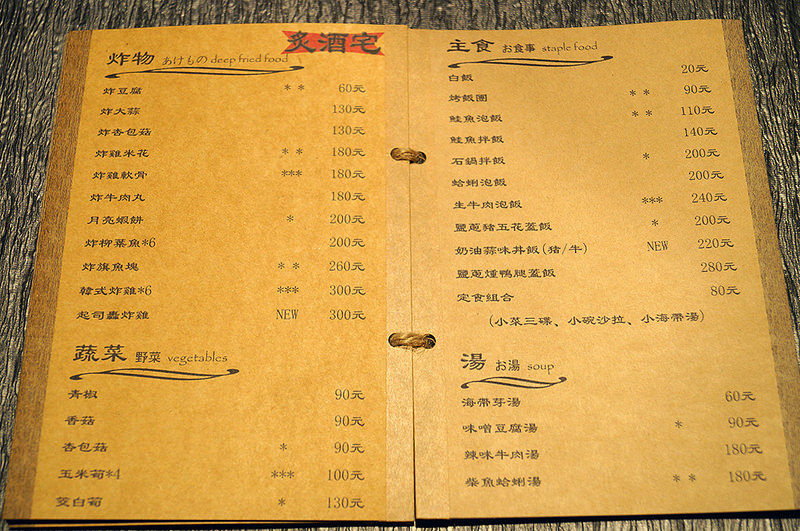 炙酒宅
炸物 あげもの deep fried food
炸豆腐 ** 60元
炸大蒜 130元
炸杏包菇 130元
炸雞米花 ** 180元
炸雞軟骨 *** 180元
炸牛肉丸 180元
月亮蝦餅 * 200元
炸柳葉魚*6 200元
炸旗魚塊 ** 260元
韓式炸雞*6 *** 300元
起司轟炸雞 NEW 300元
蔬菜 野菜 vegetables
青椒 90元
香菇 90元
杏包菇 * 90元
玉米荀*4 *** 100元
茭白荀 * 130元
主食 お食事 staple food
白飯 20元
烤飯團 ** 90元
鮭魚泡飯 ** 110元
鮭魚拌飯 140元
石鍋拌飯 * 200元
蛤蜊泡飯 200元
生牛肉泡飯 *** 240元
鹽蔥豬五花蓋飯 * 200元
奶油蒜味丼飯(豬/牛) NEW 220元
鹽蔥燻鴨腿蓋飯 280元
定食組合 80元
(小菜三碟、小碗沙拉、小海帶湯)
湯 お湯 soup
海帶芽湯 60元
味噌豆腐湯 * 90元
辣味牛肉湯 180元
柴魚蛤蜊湯 ** 180元